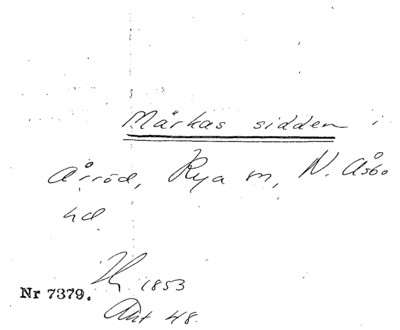 Märkas sidden i
Årröd, Rya m, N. Åsbo
hd
1853
Nr 7379.
Ant 48.